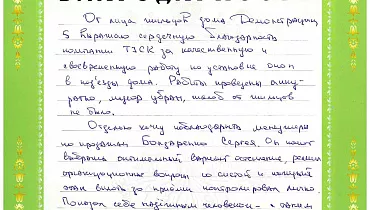 От лица жильцов дома Демонстрации,
5 выражаю сердечную благодарность
компании ТЗСК за качественную и
своевременную работу по установке окон
в подъезды дома. Работы проведены акку-
ратно, мусор убран, жалоб от жильцов
не было.
Отдельно хочу поблагодарить менеджера
по продажам Бондаренко Сергея. Он помог
выбрать оптимальный вариант остекления, решил
организационные вопросы со сметой и каждый
этап вплоть до приёмки контролировал лично.
Показал себя надёжным человеком - с таким